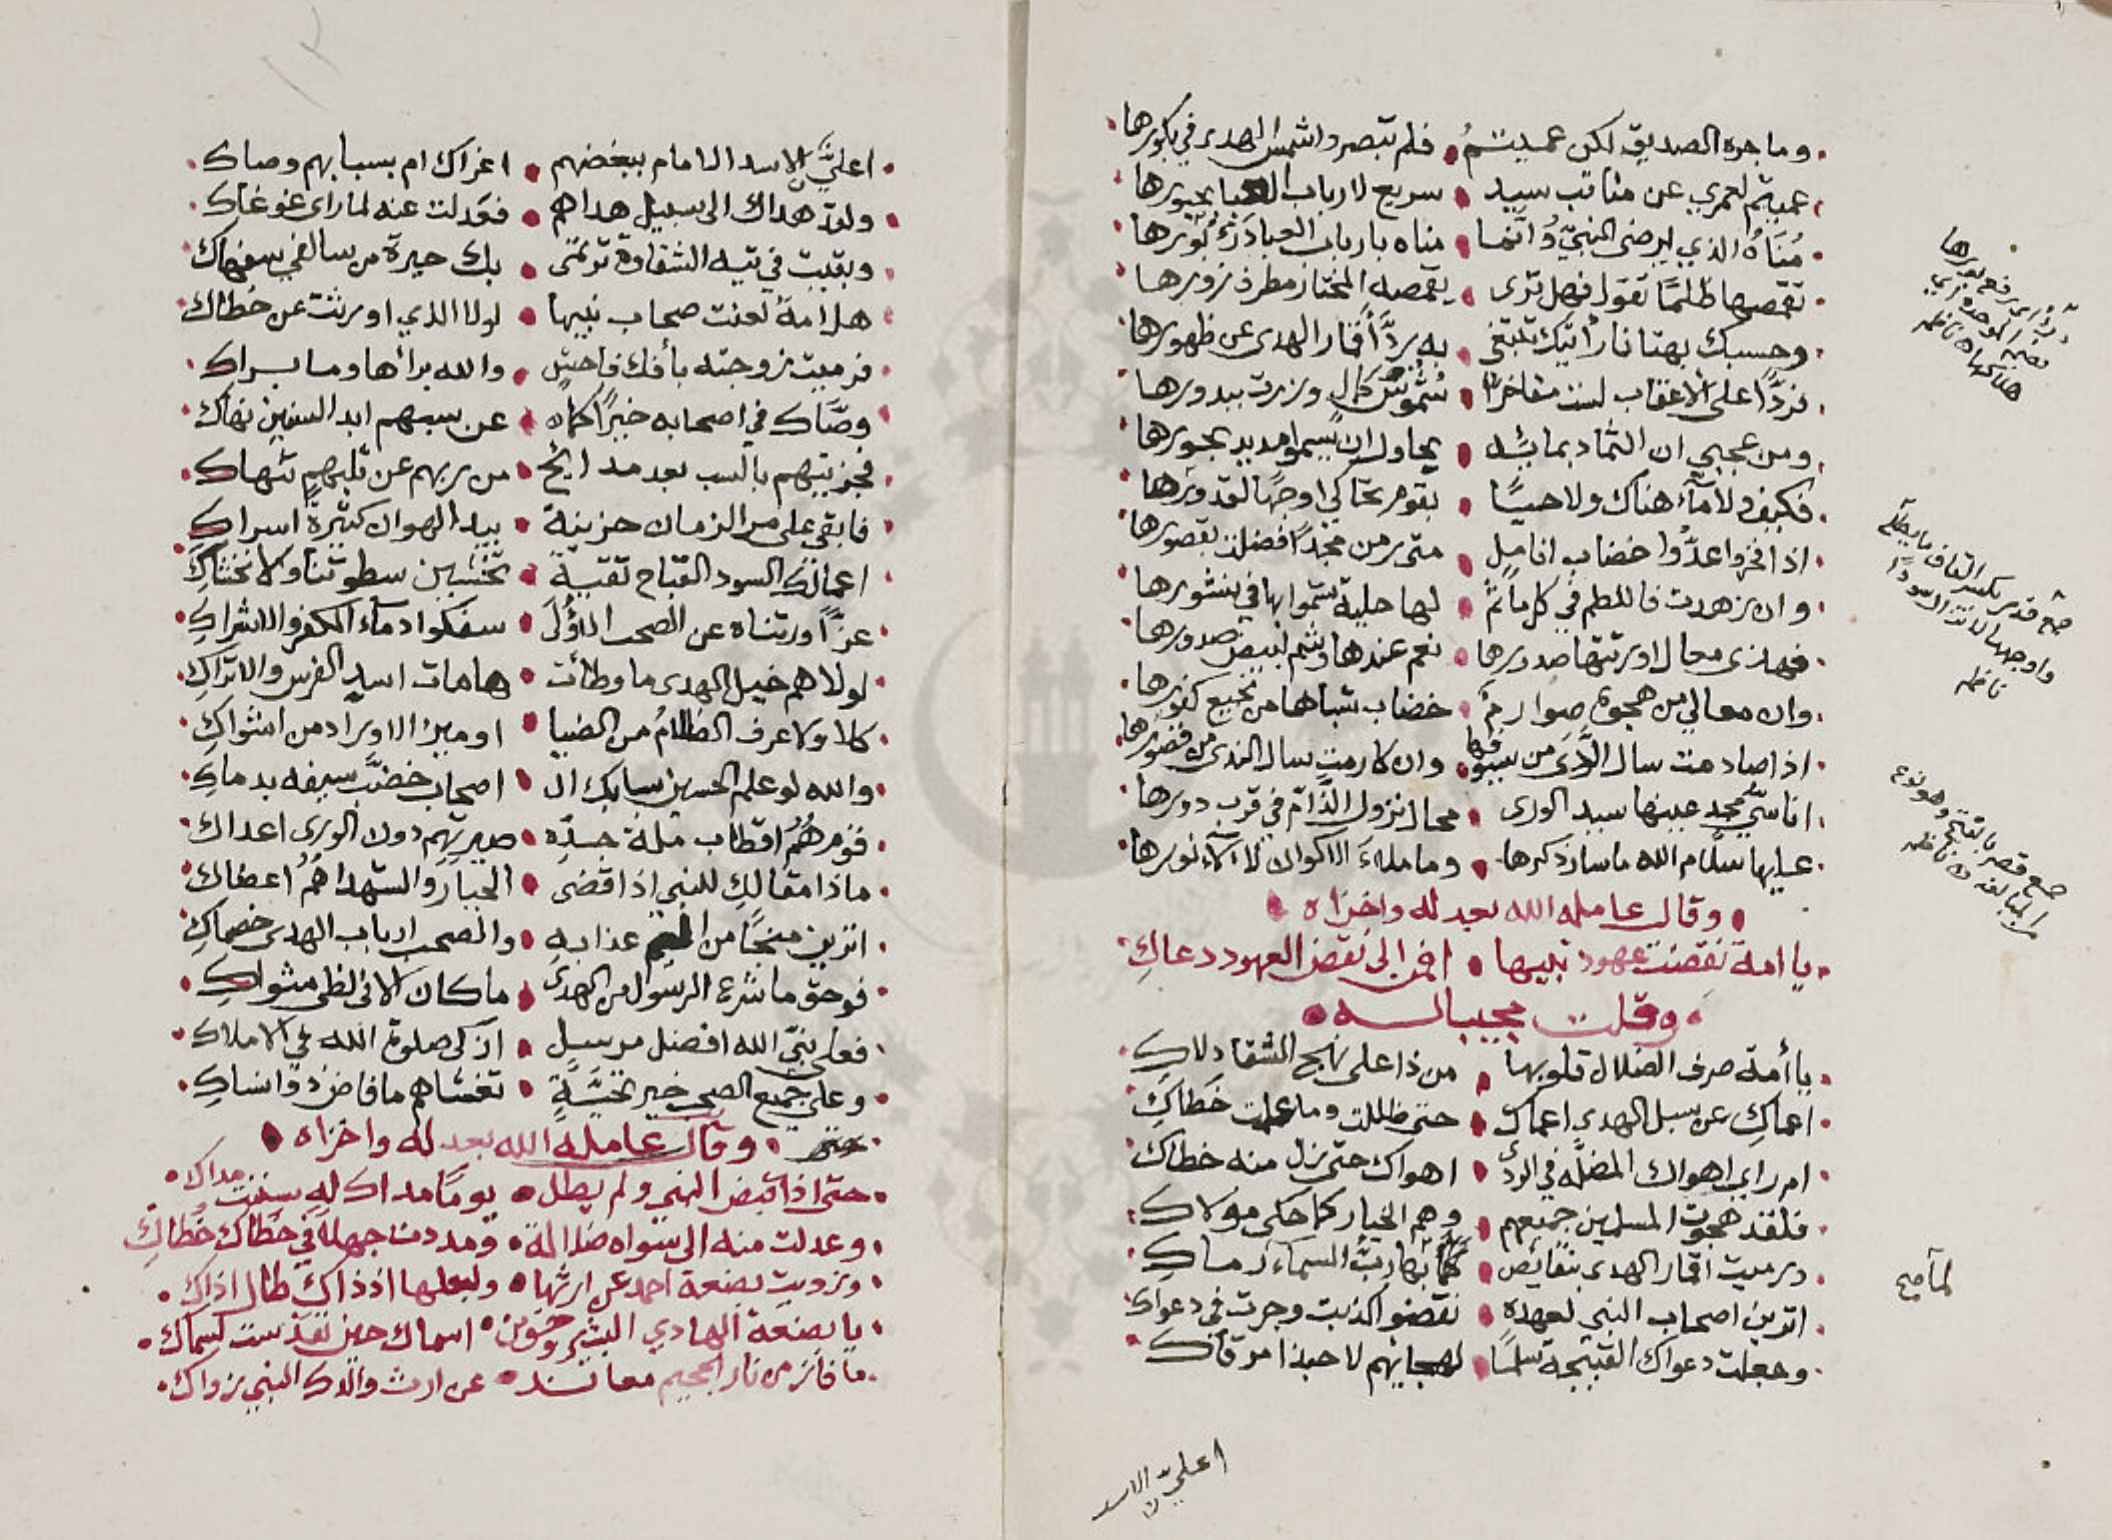 وما جره الصديق لكن عميتم فلم تبصروا شمس الهدى في بكورها
عميتم لعمري عن مناقب سيد سريع لارباب بحبورها
مناه الذي يرضى النبي وانما مناه بارباب العبا
تقمصها ظلما تقول فهل ترى بقمصه المختار مطرف زورها
وحسبك بهتانا اتيك تبتغي به رد اقمار الهدى عن ظهورها
فردا على الاعقاب لست مفاخرا شموس كمال وزرت ببدورها
ومن عجبي ان الثماد بمائه يحاول ان يسموا مديد بحورها
فكيف ولا ماء هناك ولا حيا بقوم تحاكي اوجها لقدورها
اذا فخروا عدوا خضاب انامل متى رمن مجدا فضلت بقصورها
وان زهدت فاللطم في كل مأتم لها حلية تسموا بها في نشورها
فهذي معال اورثتها صدورها نعم عندها وشم لبيض صدورها
وان معالي من هجوه صوارم خضاب شباها من نجيع كفورها
اذا صادمت سال الردى من سيوفها وان كارمت سال الندى من قصورها
اناس محبيها سيد الورى محال نزول الذام في قرب دورها
عليها سلام الله ما سار ذكرها وما ملاء الاكوان لالاء نورها
وقال عامله الله بعدله واخزاه
يا امة نقضت عهود نبيها افمن الى نقض العهود دعاك
وقلت مجيبا له
يا أمة صرف الضلال قلوبها من ذا على نهج الشقا دلاك
اعماك عن سبل الهدى اعماك حتى ظللت وما علمت خطاك
ام راي اهواك المضله في الردى اهواك حتى زل منه خطاك
فلقد هجوت المسلمين جميعهم وهم الخيار كما حكى مولاك
ورميت اقمار الهدى بنقائص لما بها رب السماء رماك
اترين اصحاب النبي لعهده نقضوا كذبت وجرت في دعواك
وجعلت دعواك القبيحة سلما لهجائهم لا حبذا مرقاك
اعلي الاسد
لما صح
اعلي الاسد الامام ببغضهم اغراك ام بسبابهم وصاك
ولقد هداك الى سبيل هداهم فعدلت عنه لما راى غوغاك
وبقيت في تيه الشقاوة ترتمي بك حيرة من سالفي سفهاك
هل امة لعنت صحاب نبيها لولا الذي اورثت عن خطاك
فرميت زوجته بأفك فاحش والله برأها وما براك
وصاك في اصحابه خيرا كما عن سبهم ابد السنين نهاك
فجزيتهم بالسب بعد مدايح من ربهم عن ثلبهم تنهاك
فابقي على مر الزمان حزينة بيد الهوان كثيرة اسراك
اعمالك السود القباح تقية تخشين سطوتنا ولا نخشاك
عزا ورثناه عن الصحب الاولى سفكوا دماء الكفر والاشراك
لولاهم خيل الهدى ما وطأت هامات اسد الفرس والاتراك
كلا ولا عرف الظلام من الضيا او ميز الاوراد من اشواك
والله لو علم الحسين سبابك ال اصحاب خضب سيفه بدماك
فزمرهم اقطاب ملة جده صيرتهم دون الورى اعداك
ماذا مقالك للنبي اذا قضى الجبار والشهدا هم اعضاك
اترين منجا من اليم عذابه والصحب ارباب الهدى خصماك
فوحق ما شرع الرسول من الهدى ما كان الا في لظى مثواك
فعلى نبي الله افضل مرسل ازكى صلوة الله في الاملاك
وعلى جميع الصحب خير تحية تغشاهم ما فاض ذو انساك
وقال عامله الله بعدله واخزاه
حتى اذا قبض النبي ولم يطل يوما مداك له سننت مداك
وعدلت منه الى سواه ضلالة ومددت جهلا في خطاك خطاك
وزويت بضعة احمد عن ارثها ولبعلها اذ ذاك طال اذاك
يا بضعة الهادي البشير وحق من اسماك حين تقدست اسماك
ما فاز من نار الجحيم معاند عن ارث والدك النبي زواك